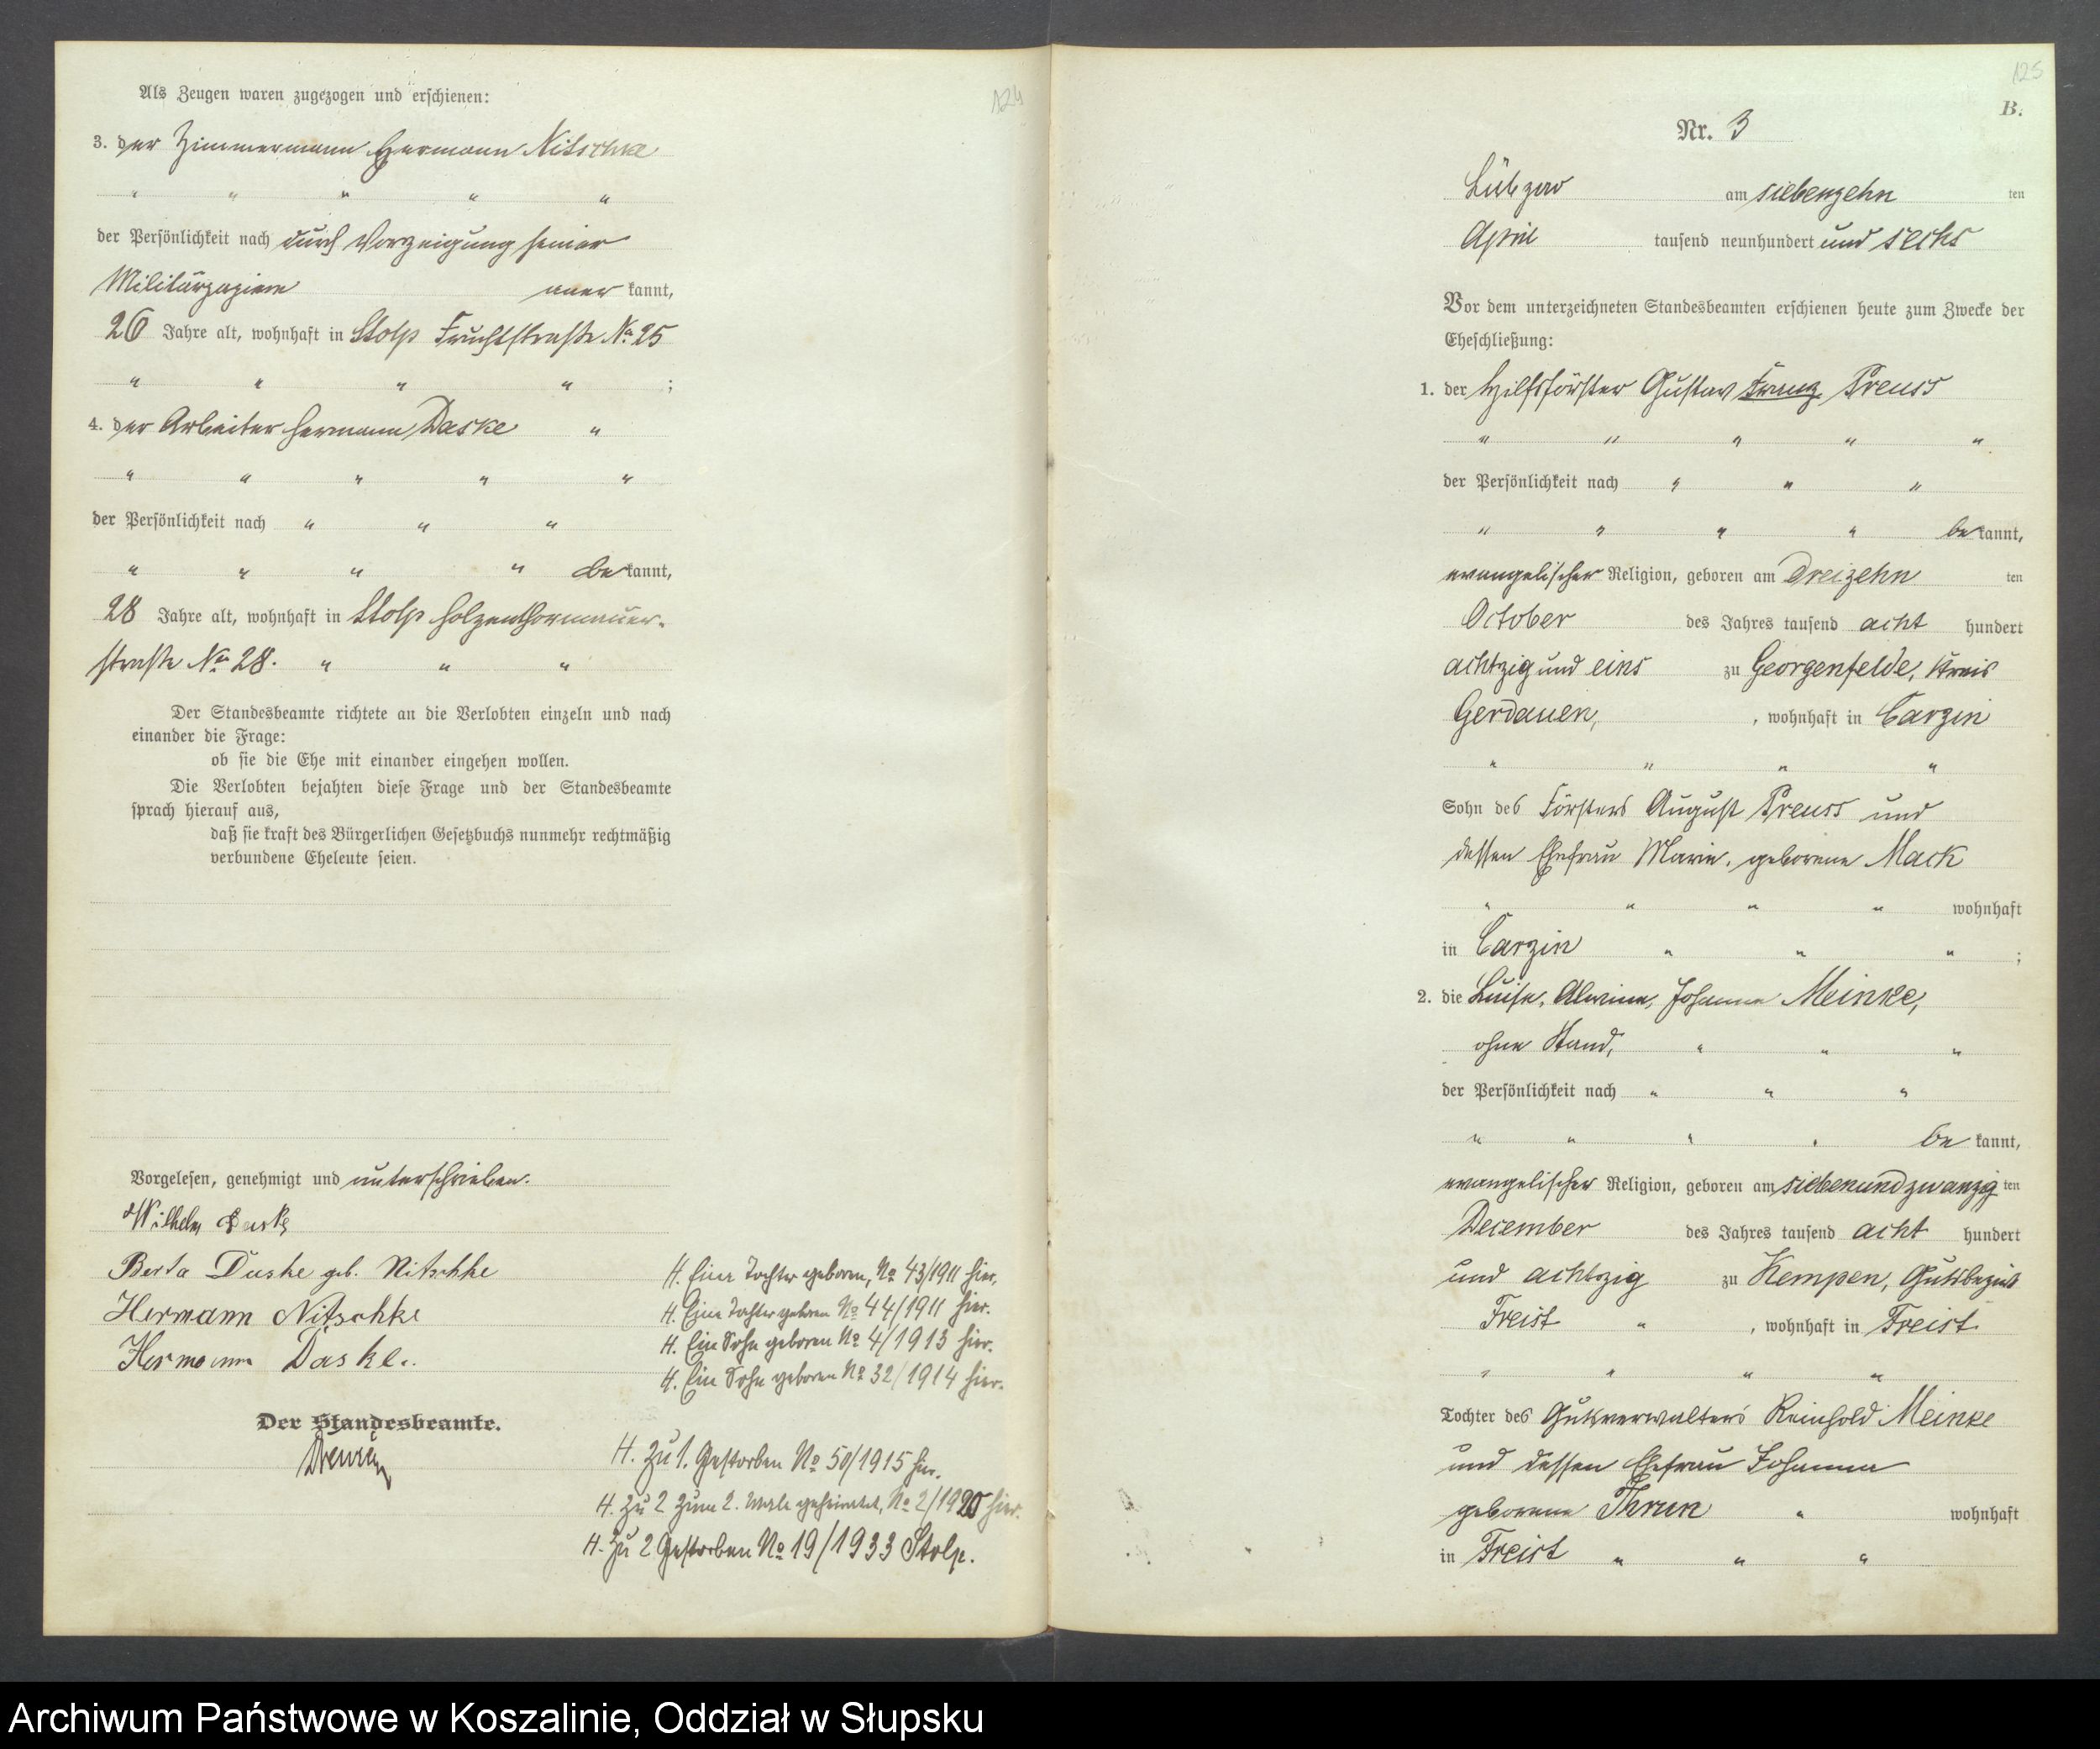 124
Als Zeugen waren zugezogen und erschienen:
3. der Zimmermann Hermann Nitschke
" " " " "
der Persönlichkeit nach durch Vorzeigung seiner
Militärpapiere aner kannt,
26 Jahre alt, wohnhaft in Stolp Fruchtstraße No 25
" " " " ;
4. der Arbeiter Hermann Daske "
" " " " "
der Persönlichkeit nach " " "
" " " " be kannt,
28 Jahre alt, wohnhaft in Stolp Holzenthormauer-
straße No 28. " " "
Der Standesbeamte richtete an die Verlobten einzeln und nach
einander die Frage:
ob sie die Ehe mit einander eingehen wollen.
Die Verlobten bejahten diese Frage und der Standesbeamte
sprach hierauf aus,
daß sie kraft des Bürgerlichen Gesetzbuchs nunmehr rechtmäßig
verbundene Eheleute seien.
Vorgelesen, genehmigt und unterschrieben.
Wilhelm Daske
Berta Daske geb. Nitschke
Hermann Nitschke
Hermann Daske.
Der Standesbeamte.
H. Eine Tochter geboren, No 43/1911 hier.
H. Eine Tochter geboren No 44/1911 hier.
H. Ein Sohn geboren No 4/1913 hier.
H. Ein Sohn geboren No 32/1914 hier.
H. Zu 1. Gestorben No 50/1915 hier.
H. Zu 2 zum 2. Male geheiratet, No 2/1920 hier.
H. Zu 2 Gestorben No 19/1933 Stolp.
125
B.
Nr. 3
Lübzow am siebenzehn ten
April tausend neunhundert und sechs
Vor dem unterzeichneten Standesbeamten erschienen heute zum Zwecke der
Eheschließung:
1. der Hilfsförster Gustav Franz Preuss
" " " " "
der Persönlichkeit nach " " "
" " " " be kannt,
evangelischer Religion, geboren am dreizehn ten
October des Jahres tausend acht hundert
achtzig und eins zu Georgenfelde, Kreis
Gerdauen, , wohnhaft in Carzin
" " " "
Sohn des Försters August Preuss und
dessen Ehefrau Marie, geborene Mack
" " " " wohnhaft
in Carzin " " " ;
2. die Luise, Alwine, Johanna Meinke,
ohne Stand, " " "
der Persönlichkeit nach " " "
" " " " be kannt,
evangelischer Religion, geboren am siebenundzwanzig ten
December des Jahres tausend acht hundert
und achtzig zu Kempen, Gutsbezirk
Freist " , wohnhaft in Freist
" " " "
Tochter des Gutsverwalters Reinhold Meinke
und dessen Ehefrau Johanna
geborene Thrun " wohnhaft
in Freist " " "
Archiwum Państwowe w Koszalinie, Oddział w Słupsku